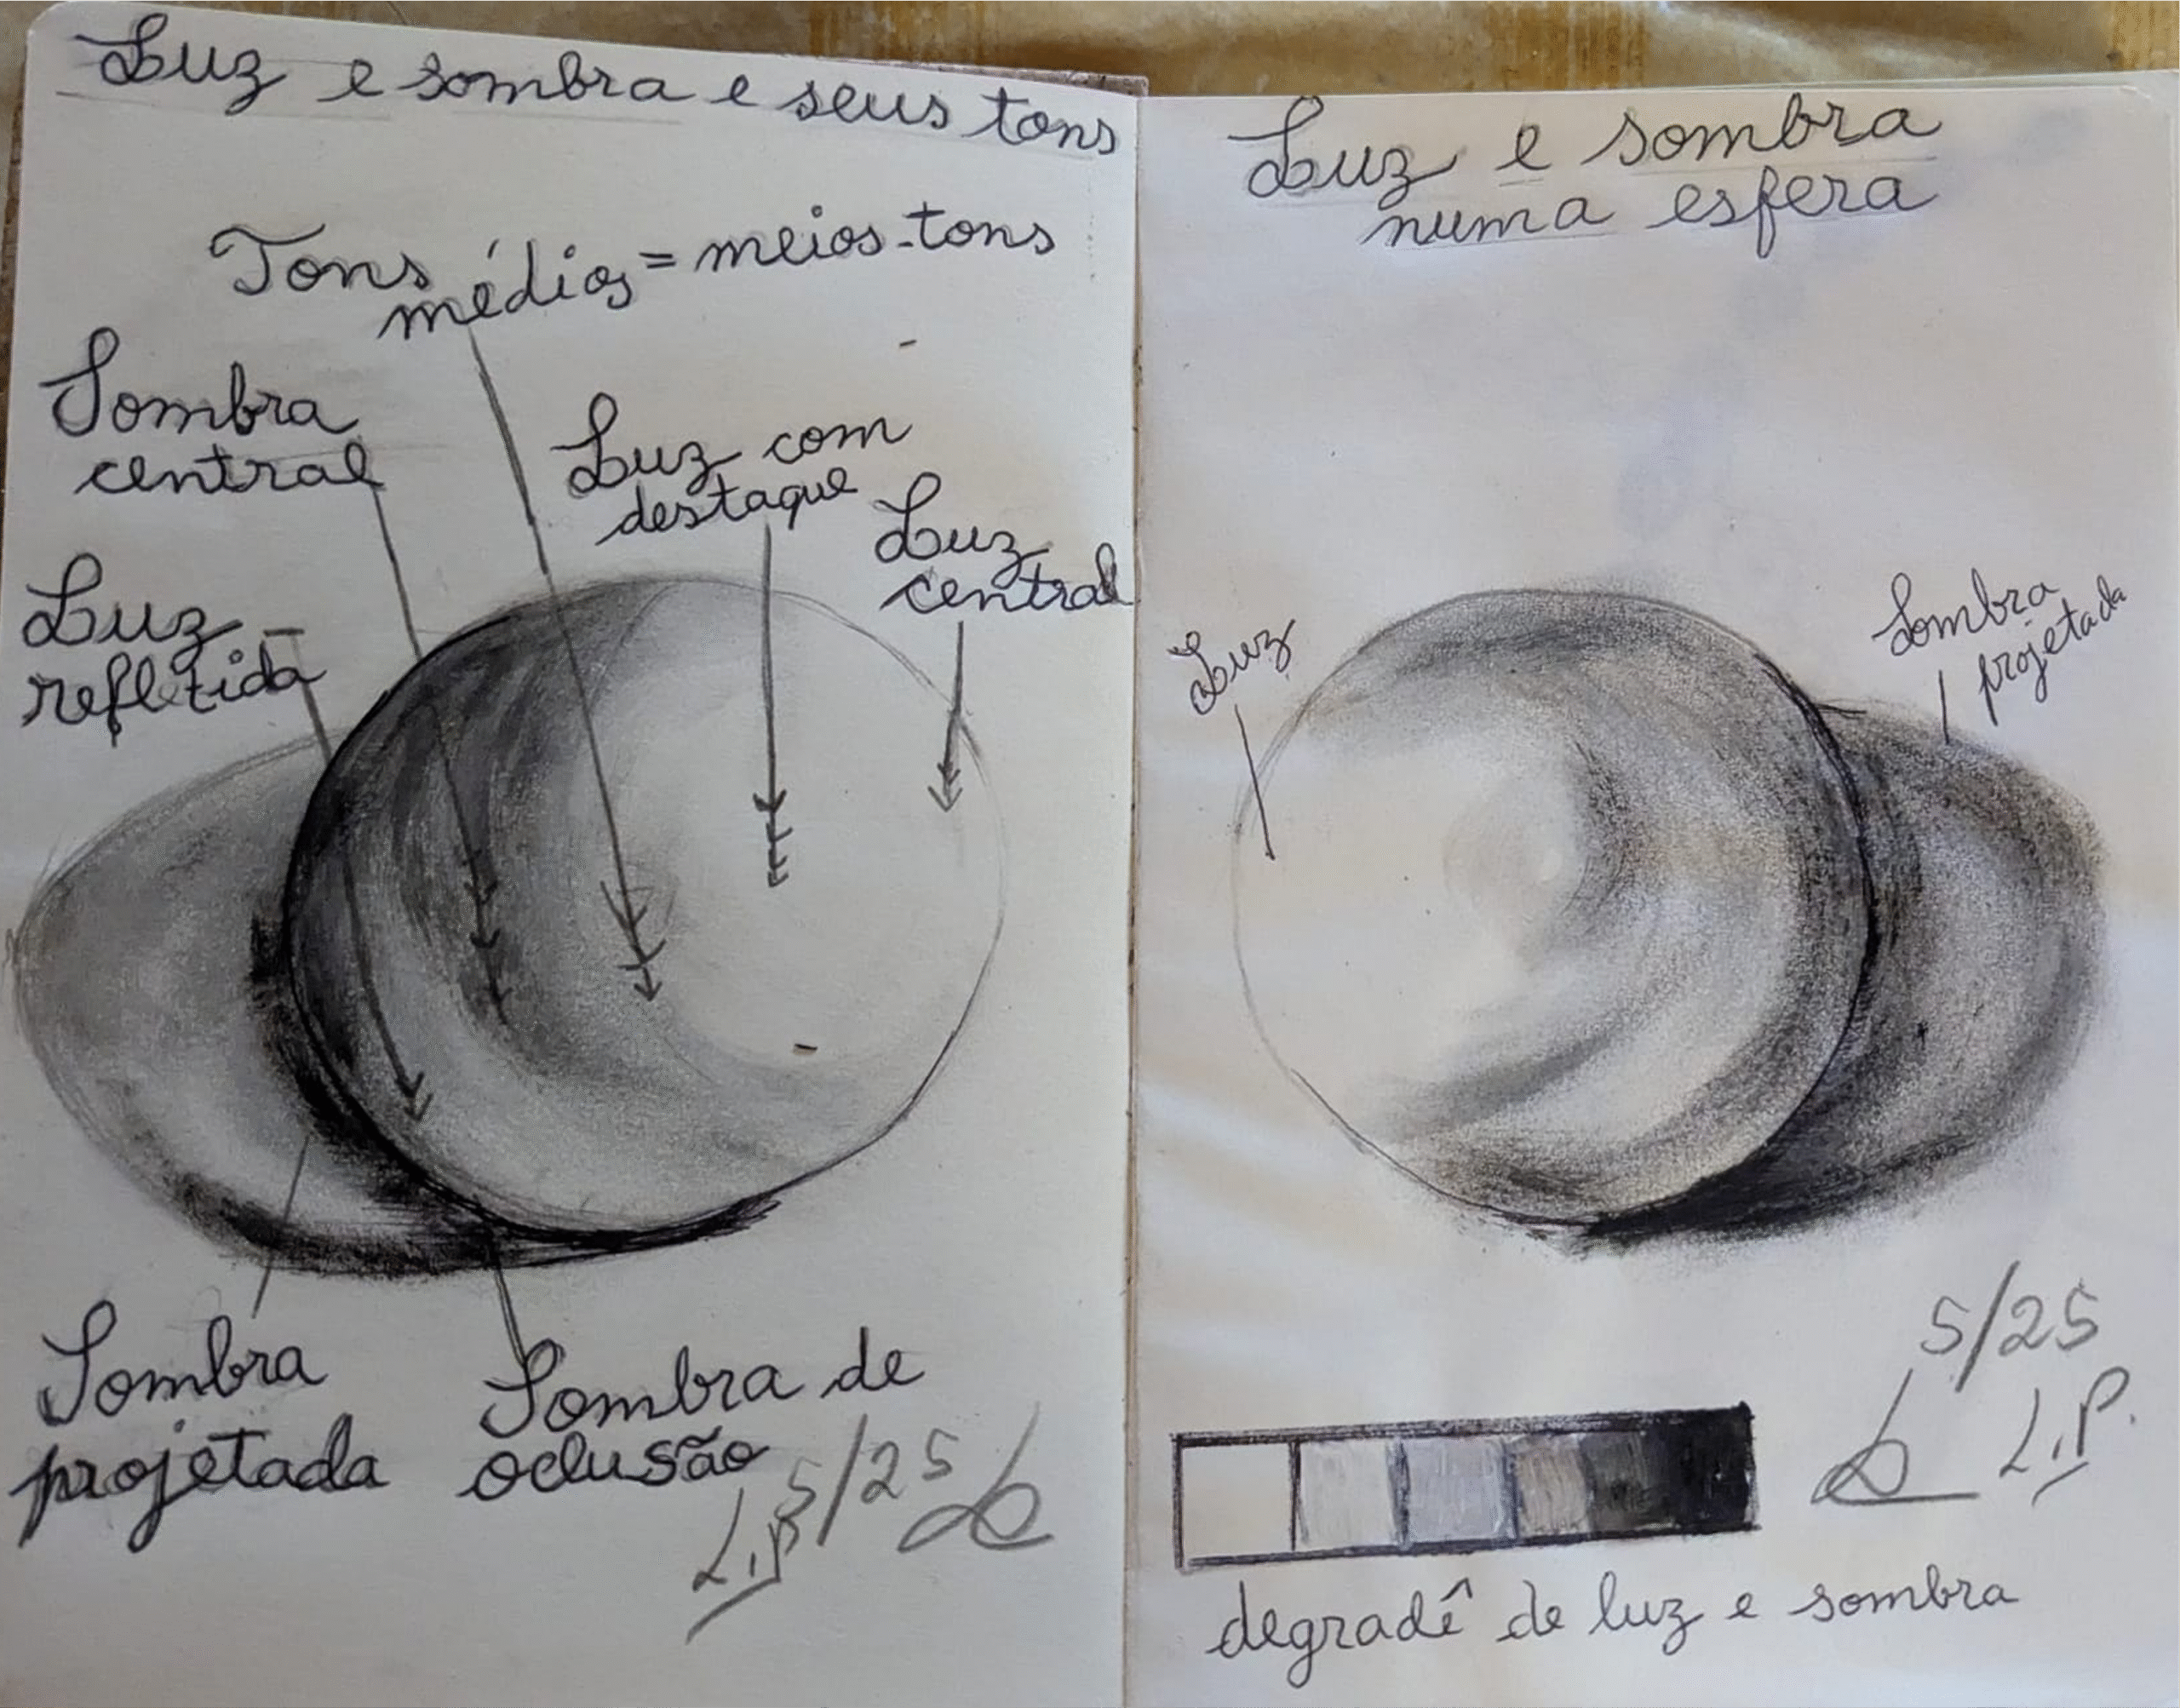 Luz e sombra e seus tons
Tons médios = meios-tons
Sombra
central
Luz com
destaque
Luz
central
Luz
refletida
Sombra
projetada
Sombra de
oclusão
5/25
L.P
Luz e sombra
numa esfera
Luz
Sombra
projetada
5/25
L.P.
degradê de luz e sombra